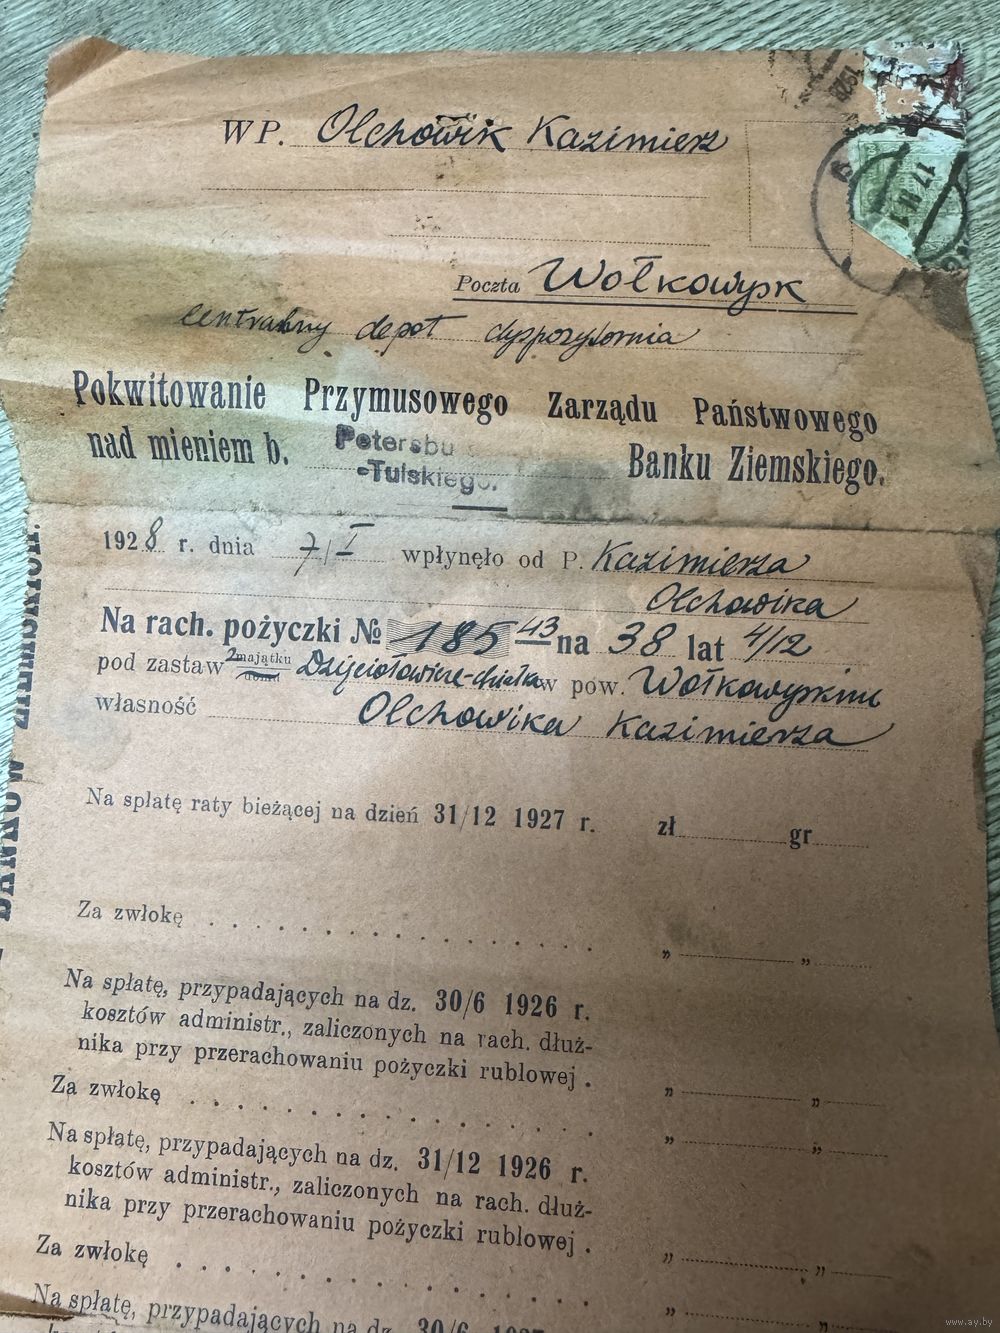 1928
17 II
WP. Olchowik Kazimierz
Poczta Wołkowysk
centralny depot dyspozytornia
Pokwitowanie Przymusowego Zarządu Państwowego
nad mieniem b. Petersbu -Tulskiego. Banku Ziemskiego.
1928 r. dnia 7/I wpłynęło od P. Kazimierza
Olchowika
Na rach. pożyczki № 185 43 na 38 lat 4/12
pod zastaw majątku w pow. Wołkowyskim
własność Olchowika Kazimierza
Na spłatę raty bieżącej na dzień 31/12 1927 r. zł gr
Za zwłokę „ „
Na spłatę, przypadających na dz. 30/6 1926 r.
kosztów administr., zaliczonych na rach. dłuż-
nika przy przerachowaniu pożyczki rublowej . „ „
Za zwłokę „ „
Na spłatę, przypadających na dz. 31/12 1926 r.
kosztów administr., zaliczonych na rach. dłuż-
nika przy przerachowaniu pożyczki rublowej . „ „
Za zwłokę „
Na spłatę, przypadających na dz. 30/6
BANKÓW ZIEMSKICH.
www.ay.by